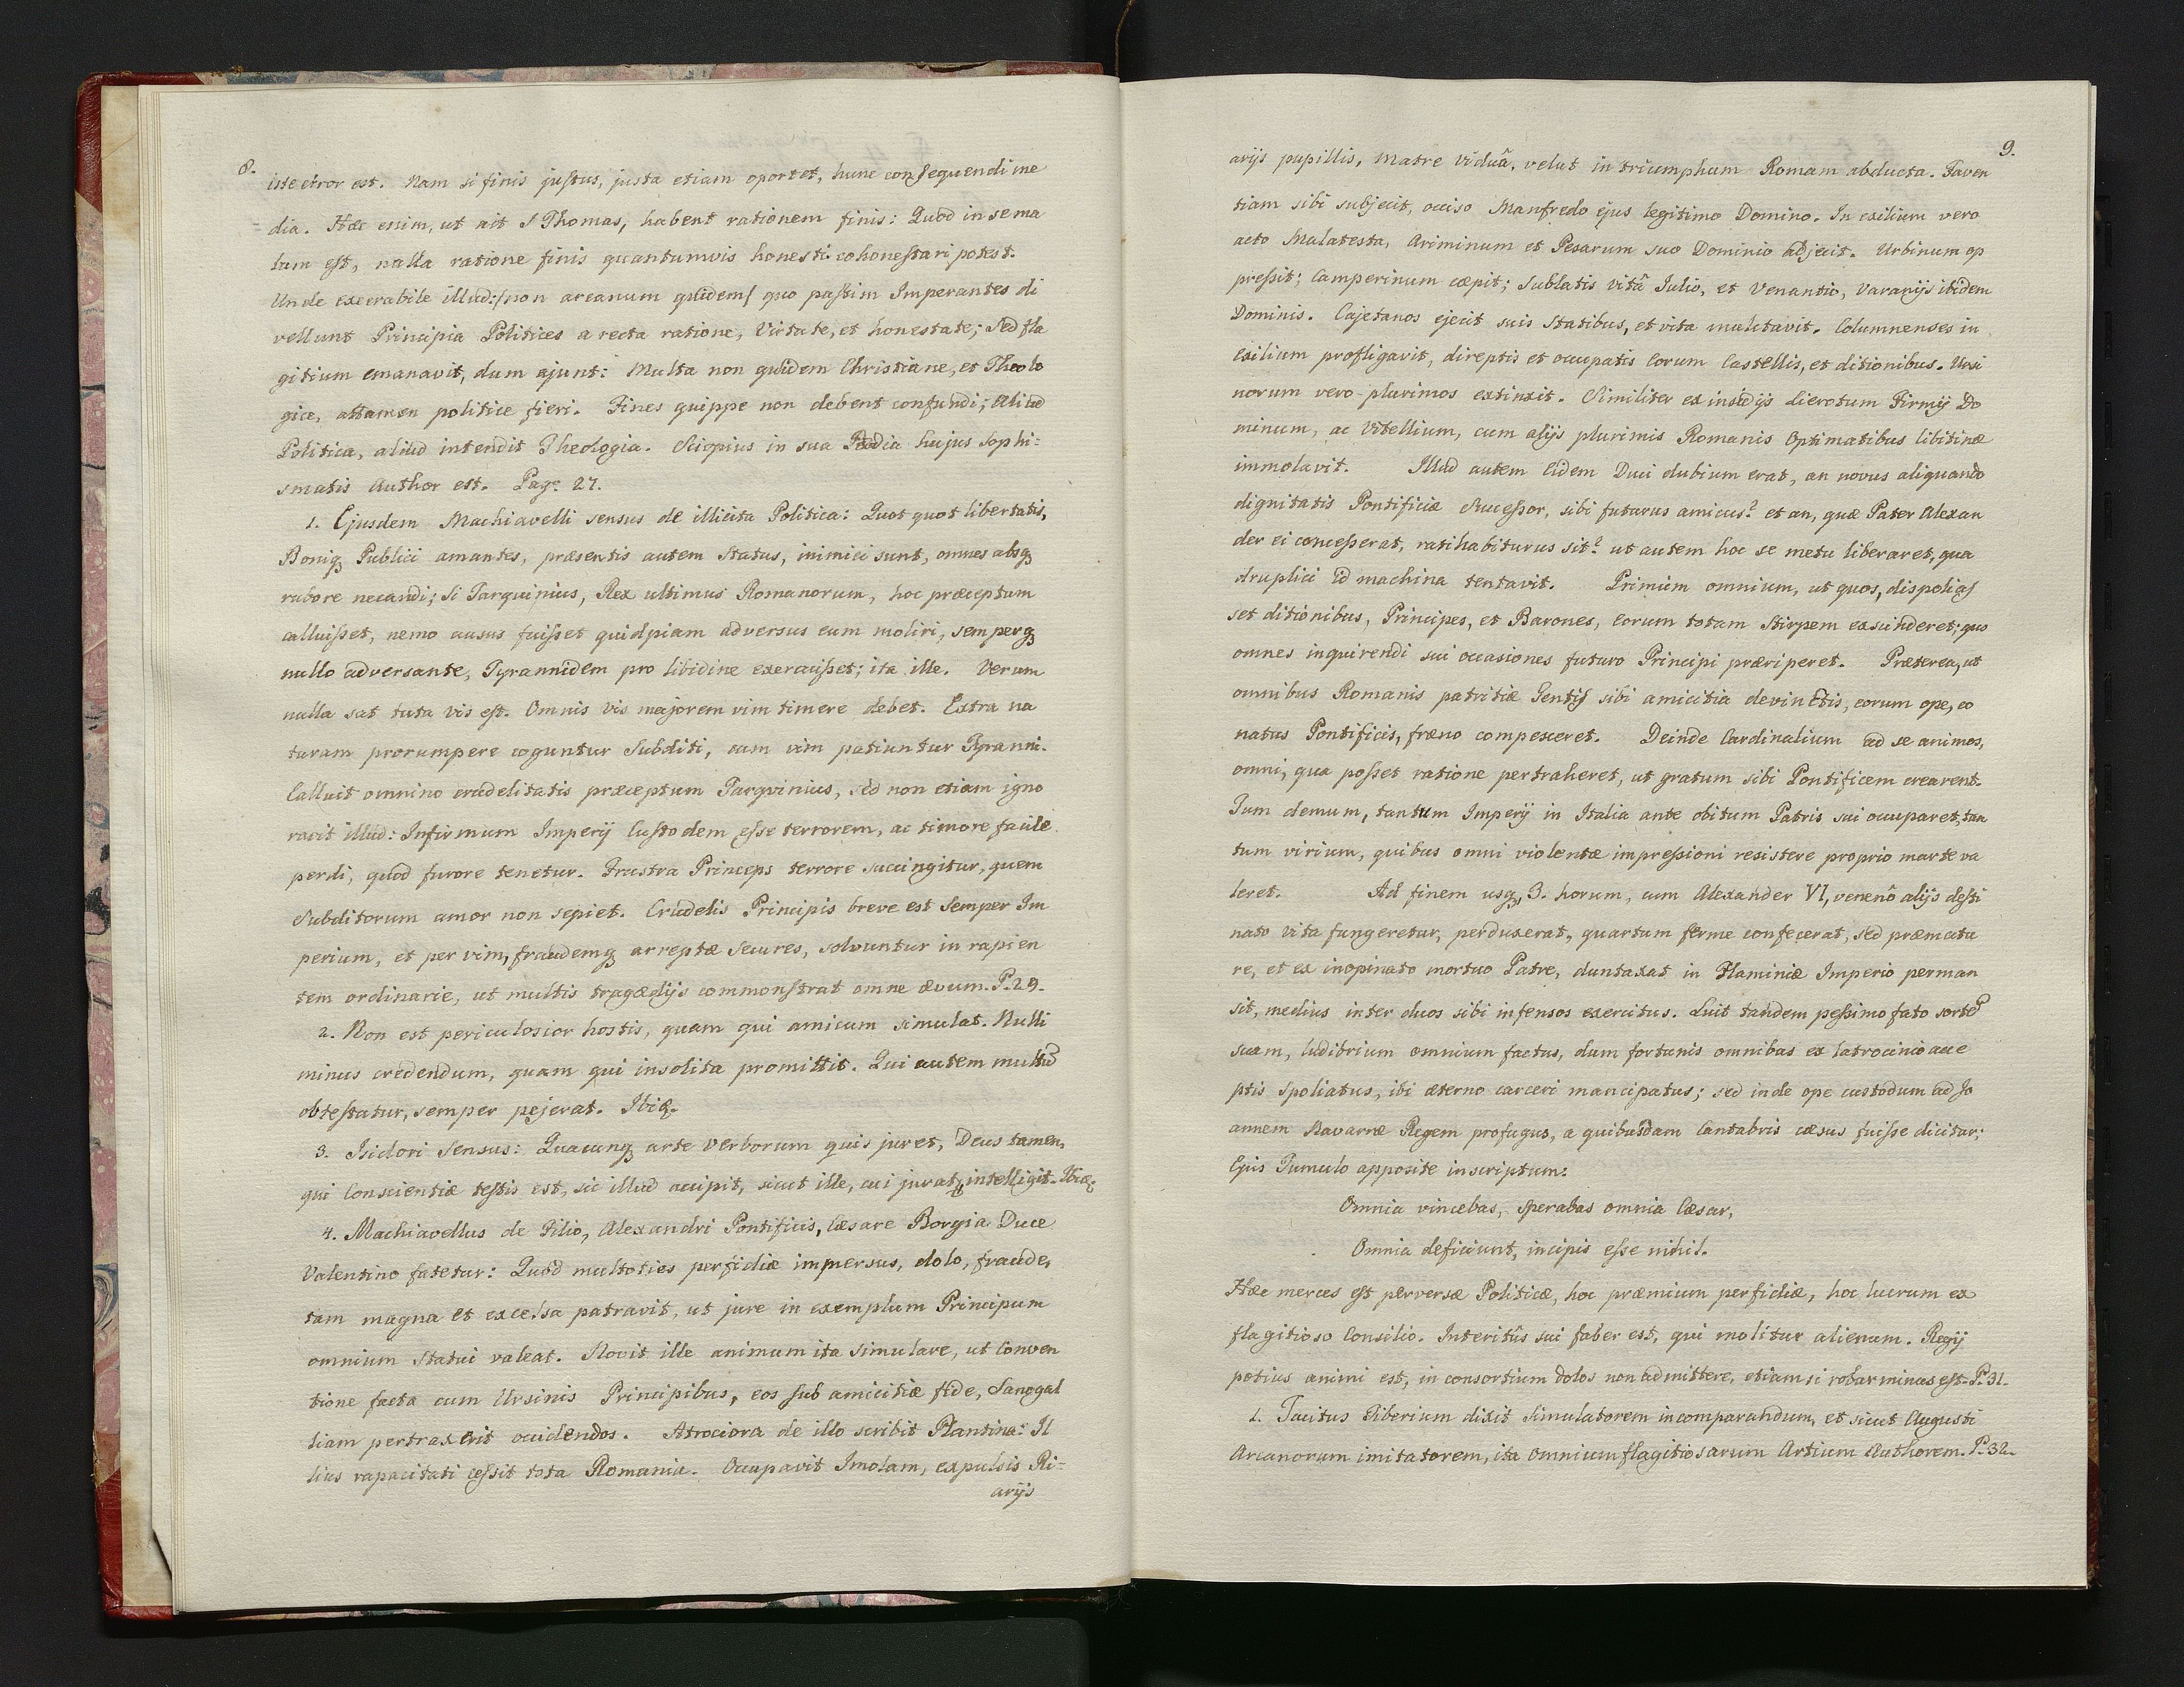 8.
iste error est. Nam si finis justus, justa etiam oportet, hunc consequendi me
dia. Hæc enim, ut ait S Thomas, habent rationem finis: Quod in se ma
lum est, nulla ratione finis quantumvis honesti cohonestari potest.
Unde execrabile illud: /non arcanum quidem/ quo passim Imperantes di
vellunt Principia Politices a recta ratione, Virtute, et honestate; sed fla
gitium emanavit, dum ajunt: Multa non quidem Christiane, et Theolo
gice, attamen politice fieri. Fines quippe non debent confundi; Aliud
Politica, aliud intendit Theologia. Sciopius in sua Pædia hujus Sophi=
smatis Author est. Pag. 27.
1. Ejusdem Machiavelli sensus de illicita Politica: Quot quot libertatis,
Boniq Publici amantes, præsentis autem Status, inimici sunt, omnes absq
rubore necandi; Si Tarquinius, Rex ultimus Romanorum, hoc præceptum
calluisset, nemo ausus fuisset quidpiam adversus eum moliri, semperq
nullo adversante, Tyrannidem pro libidine exercuisset; ita ille. Verum
nulla sat tuta vis est. Omnis vis majorem vim timere debet. Extra na
turam prorumpere coguntur Subditi, cum vim patiuntur Tyranni.
Calluit omnino crudelitatis præceptum Tarqvinius, sed non etiam igno
ravit illud: Infirmum Imperij Custodem esse terrorem, ac timore facile
perdi, quod furore tenetur. Frustra Princeps terrore succingitur, quem
Subditorum amor non sepiet. Crudelis Principis breve est semper Im
perium, et per vim, fraudemq arreptæ secures, solvuntur in rapien
tem ordinarie, ut multis tragædijs commonstrat omne ævum. P. 29.
2. Non est periculosior hostis, quam qui amicum simulat. Nulli
minus credendum, quam qui insolita promittit. Qui autem multu
obtestatur, semper pejerat. Ibiq.
3. Isidori Sensus: Quacunq arte verborum quis juret, Deus tamen,
qui Conscientiæ testis est, sic illud accipit, sicut ille, cui jurat, intelligit. Ibiq.
4. Machiavellus de Filio, Alexandri Pontificis, Cæsare Borgia Duce
Valentino fatetur: Quod multoties perfidiæ impersus, dolo, fraude,
tam magna et excelsa patravit, ut jure in exemplum Principum
omnium Statui valeat. Novit ille animum ita simulare, ut Conven
tione facta cum Ursinis Principibus, eos sub amicitiæ fide, Sanogal
liam pertraxerit occidendos. Atrociora de illo scribit Plantina: Il
lius rapacitati cessit tota Romania. Occupavit Imolam, expulsis Ri=
arijs
9.
arijs pupillis, Matre viduâ, velut in triumphum Romam abducta. Faven
tiam sibi subjecit, occiso Manfredo ejus legitimo Domino. In exilium vero
acto Malatesta, Ariminum et Pesarum suo Dominio adjecit. Urbinum op
pressit; Camperinum cœpit; Sublatis vitâ Julio, et Venantio, Varanijs ibidem
Dominis. Cajetanos ejecit suis Statibus, et vita mulctavit. Columnenses in
Exilium profligavit, direptis et occupatis Eorum Castellis, et ditionibus. Ursi
norum vero plurimos extinxit. Similiter ex insidijs Lierotum Firmij Do
minum, ac Vitellium, cum alijs plurimis Romanis Optimatibus libitinæ
immolavit. Illud autem Eidem Duci dubium erat, an novus aliquando
dignitatis Pontificiæ Successor, sibi futurus amicus? et an, quæ Pater Alexan
der ei concesserat, ratihabiturus sit? ut autem hoc se metu liberaret, qua
druplici id machina tentavit. Primum omnium, ut quos, dispolias
set ditionibus, Principes, et Barones, Eorum totam Stirpem exscinderet; quo
omnes inquirendi sui occasiones futuro Principi præriperet. Præterea, ut
omnibus Romanis patritiæ Gentis sibi amicitia devinctis, eorum ope, co
natus Pontificis, fræno compesceret. Deinde Cardinalium ad se animos,
omni, qua posset ratione pertraheret, ut gratum sibi Pontificem crearent.
Tum demum, tantum Imperij in Italia ante obitum Patris sui occuparet, tan
tum virium, quibus omni violentæ impressioni resistere proprio marte va
leret. Ad finem usq, 3. horum, cum Alexander VI, venenô alijs desti
nato vita fungeretur, perduxerat, quartum ferme confecerat, sed præmatu
re, et ex inopinato mortuo Patre, duntaxat in Flaminiæ Imperio perman
sit, medius inter duos sibi infensos exercitus. Luit tandem pessimo fato sorte
suam, ludibrium omnium factus, dum fortunis omnibus ex latrocinio acce
ptis spoliatus, ibi æterno carceri mancipatus; sed inde ope custodum ad Jo
annem Navarræ Regem profugus, a quibusdam Cantabris cæsus fuisse dicitur;
Ejus Tumulo apposite inscriptum:
Omnia vincebas, sperabas omnia Cæsar,
Omnia deficiunt, incipis esse nihil.
Hæc merces est perversæ Politicæ, hoc præmium perfidiæ, hoc lucrum ex
flagitioso Consilio. Interitûs sui faber est, qui molitur alienum. Regij
potius animi est, in consortium dolos non admittere, etiamsi robur minus est. P. 31.
1. Tacitus Tiberium dixit Simulatorem incomparandum, et sicut Augusti
Arcanorum imitatorem, ita omnium flagitiosarum Artium Authorem. P. 32.